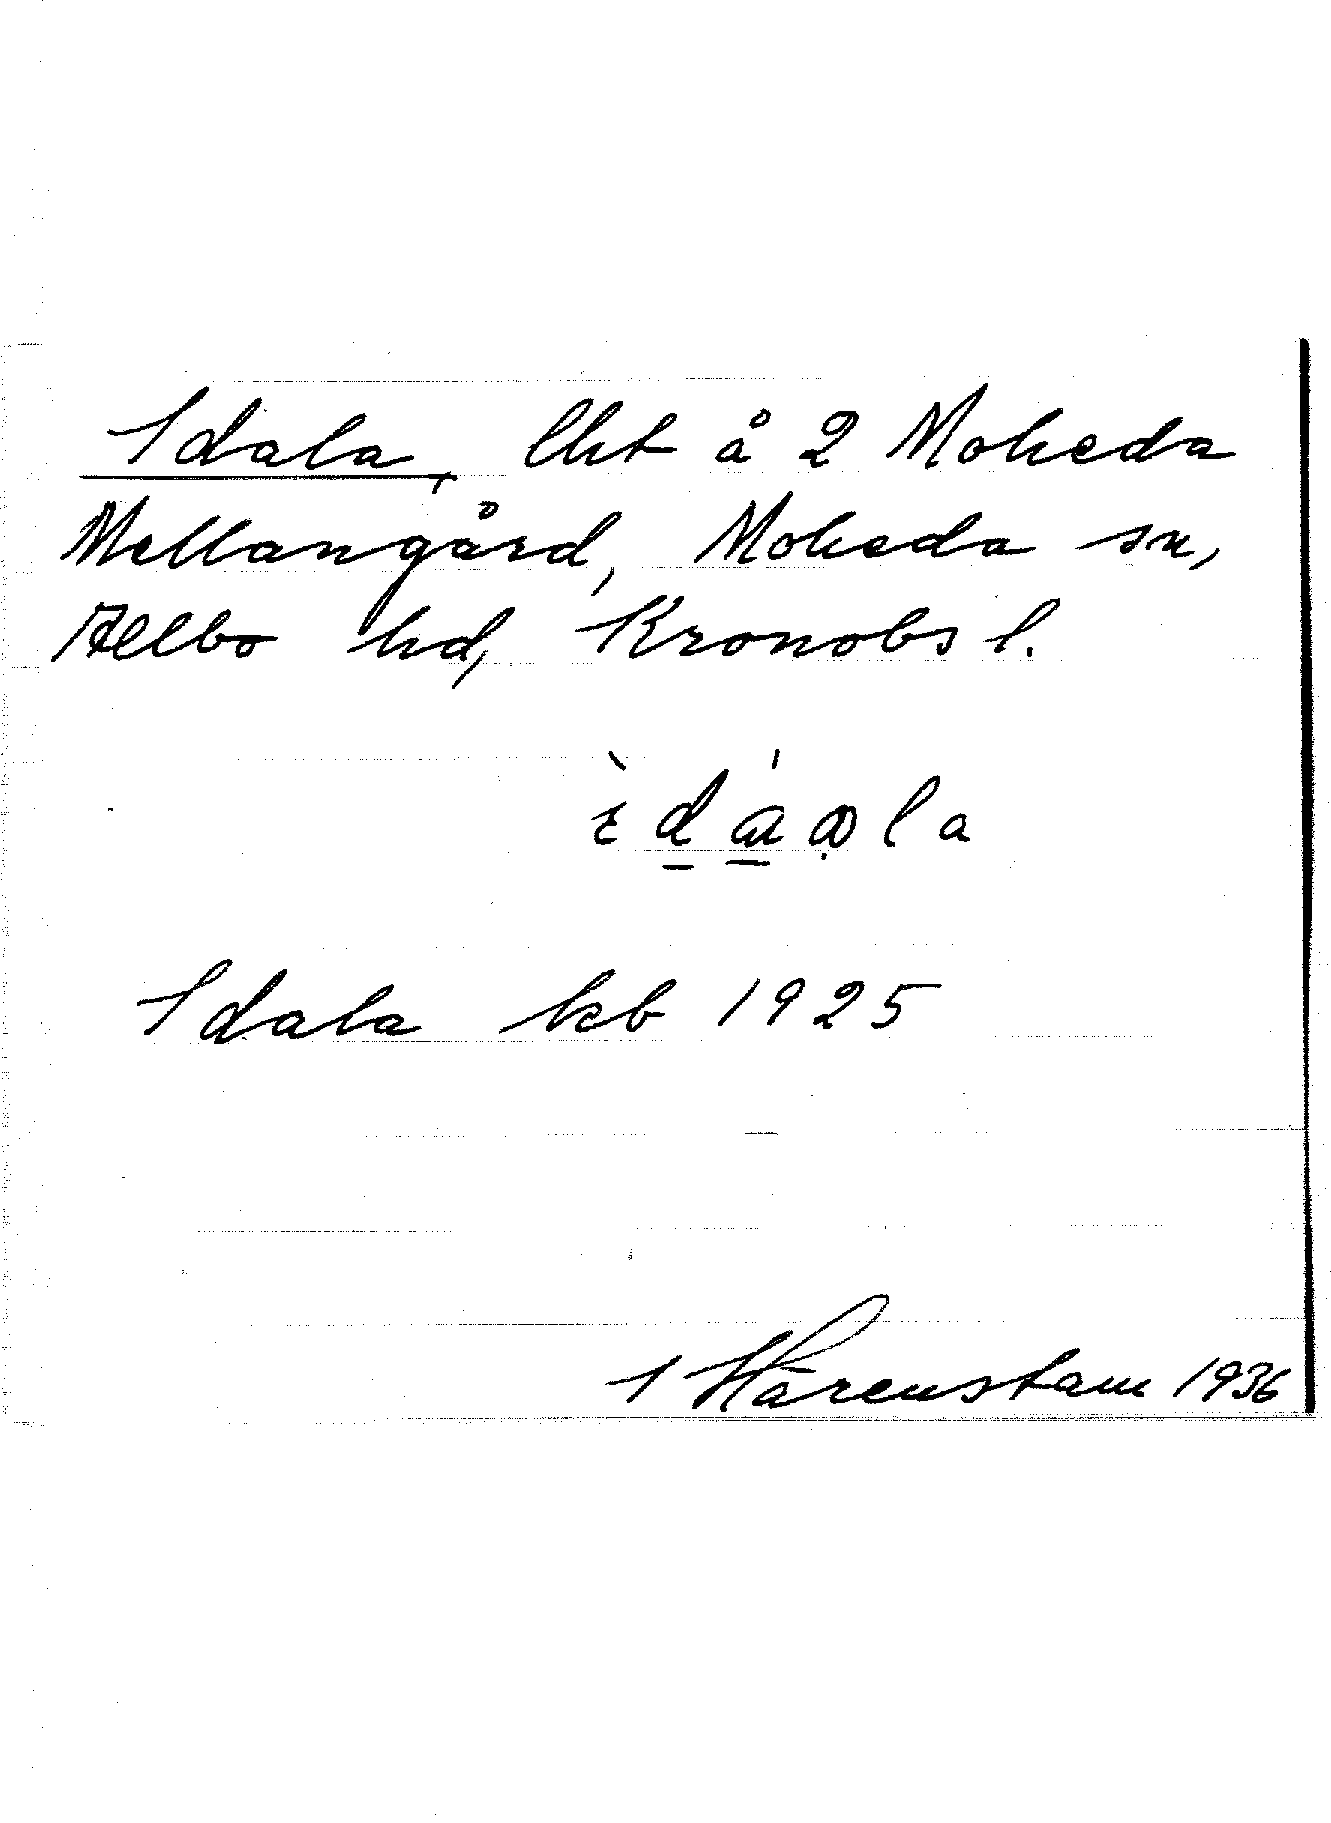 Idala, lht å 2 Moheda
Mellangård, Moheda sn,
Allbo hd, Kronobs l.
Idala kb 1925
I Hårenstam 1936